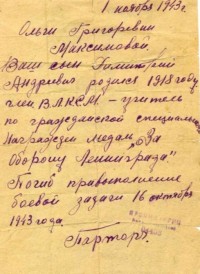 1 ноября 1943г.
Ольги Григоревни
Максимовой.
Ваш сын Димитрий
Андревич родился 1918 году
член ВЛКСМ – учитель
по гражданской специально
Награжден медал. „За
Оборону Ленинграда"
Погиб
боевой задачи 16 октября
1943 года.
Парторг